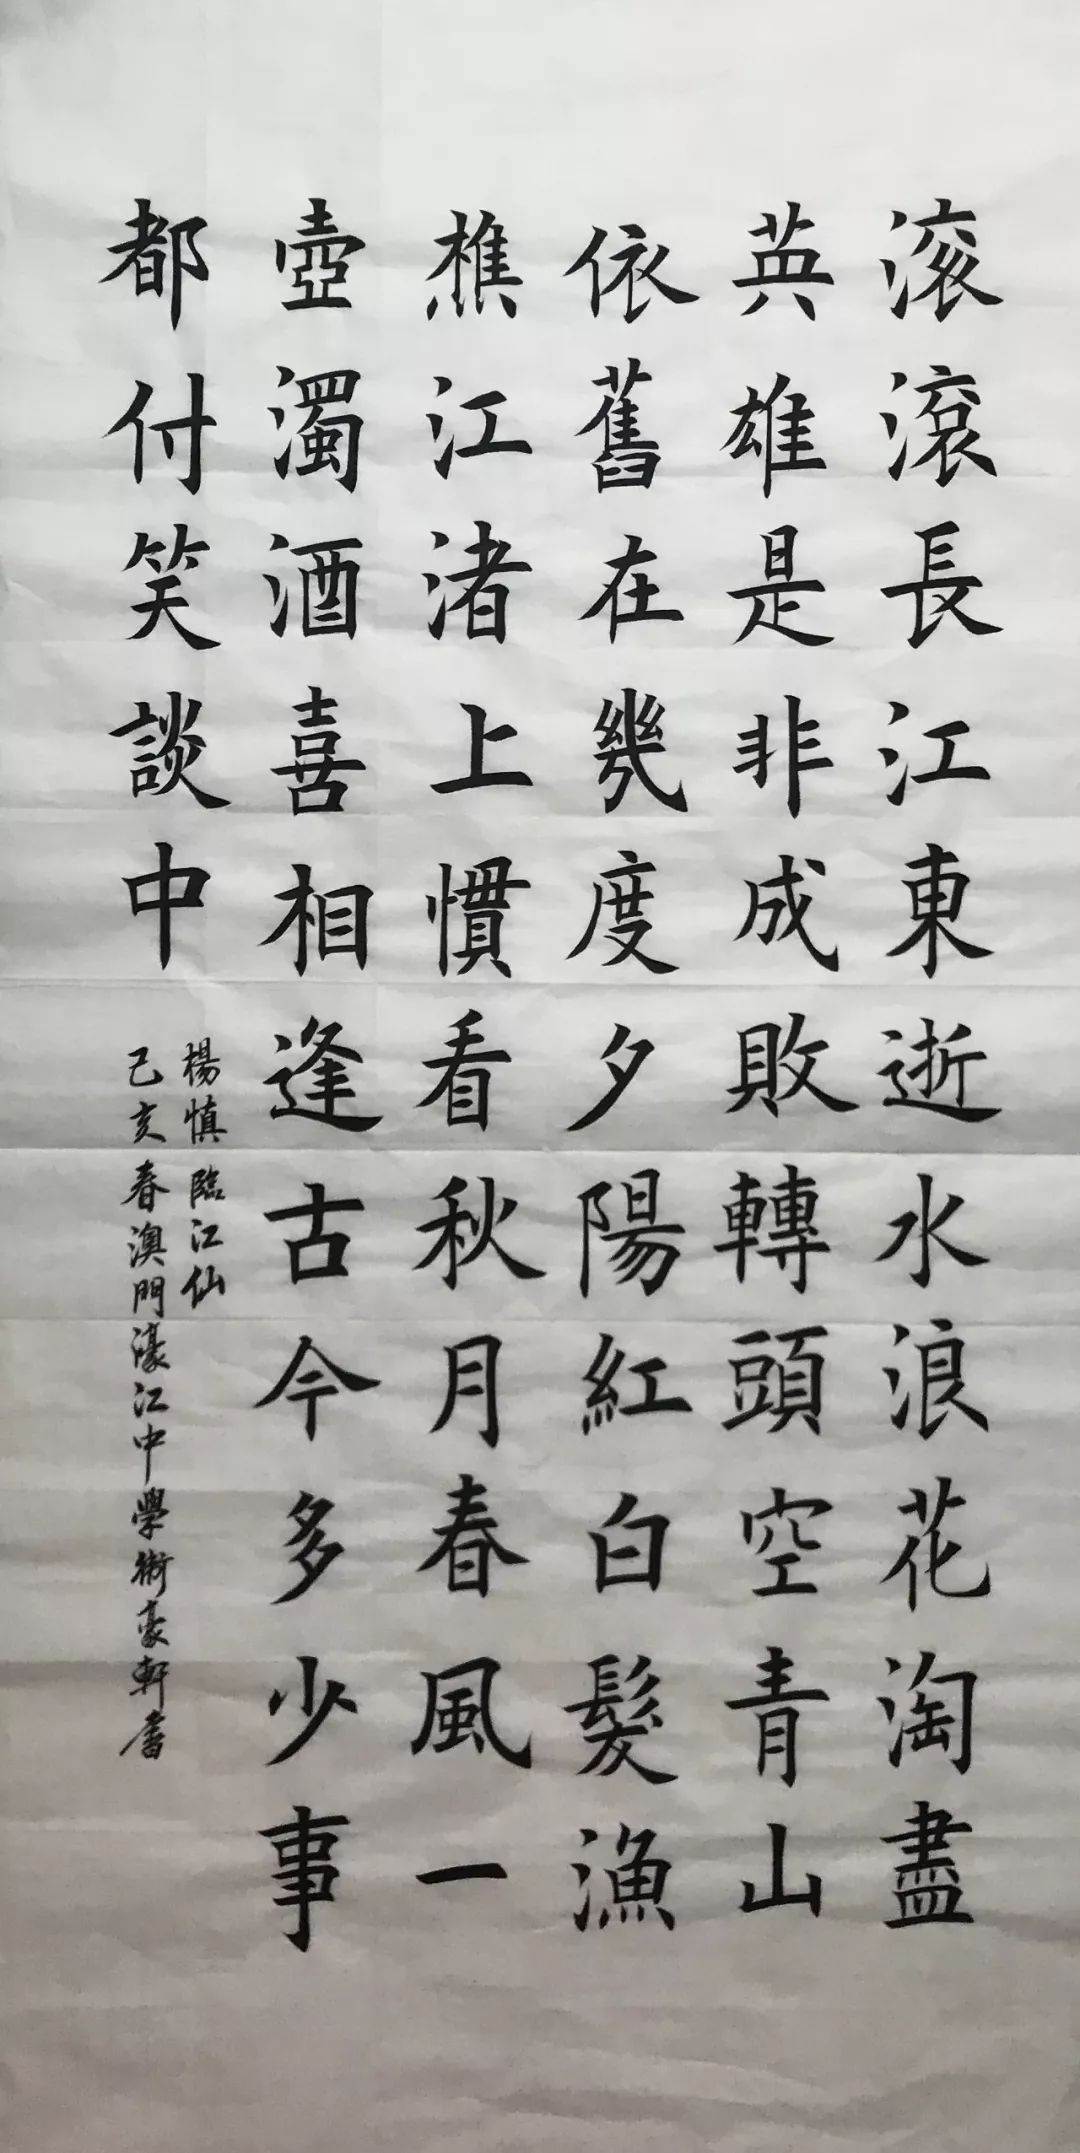 滾滾長江東逝水浪花淘盡
英雄是非成敗轉頭空青山
依舊在幾度夕陽紅白髮漁
樵江渚上慣看秋月春風一
壺濁酒喜相逢古今多少事
都付笑談中
楊慎臨江仙
己亥春澳門濠江中學術豪軒書